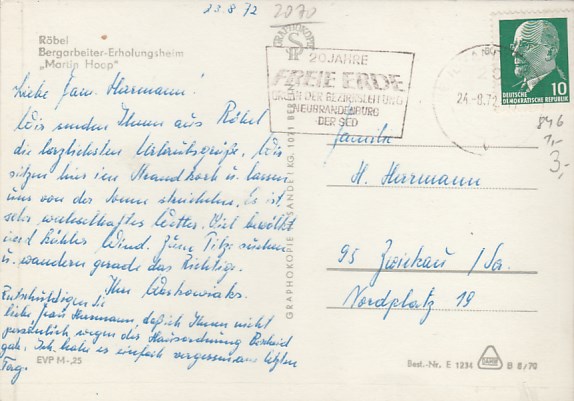 23.8.72
2070
Röbel
Bergarbeiter-Erholungsheim
„Martin Hoop“
Liebe Fam. Herrmann!
Wir senden Ihnen aus Röbel
die herzlichsten Urlaubsgrüße. Wir
sitzen hier im Strandkorb u. lassen
uns von der Sonne streicheln. Es ist
sehr wechselhaftes Wetter. Viel bewölkt
und kühler Wind. Zum Pilze suchen
u. wandern gerade das Richtige.
Ihre
Entschuldigen Sie
liebe Frau Herrmann, daß ich Ihnen nicht
persönlich wegen der Hausordnung Bescheid
gab. Ich habe es einfach vergessen am letzten
Tag.
EVP M -,25
GRAPHOKOPIE H. SANDER KG, 1071 BERLIN
GRAPHOKOPIE
20 JAHRE
FREIE ERDE
ORGAN DER BEZIRKSLEITUNG
NEUBRANDENBURG
DER SED
24.-8.72
DEUTSCHE
DEMOKRATISCHE REPUBLIK
10
846
1,-
3,-
Familie
H. Herrmann
95 Zwickau /Sa.
Nordplatz 19
Best.-Nr. E 1234
B 8/70